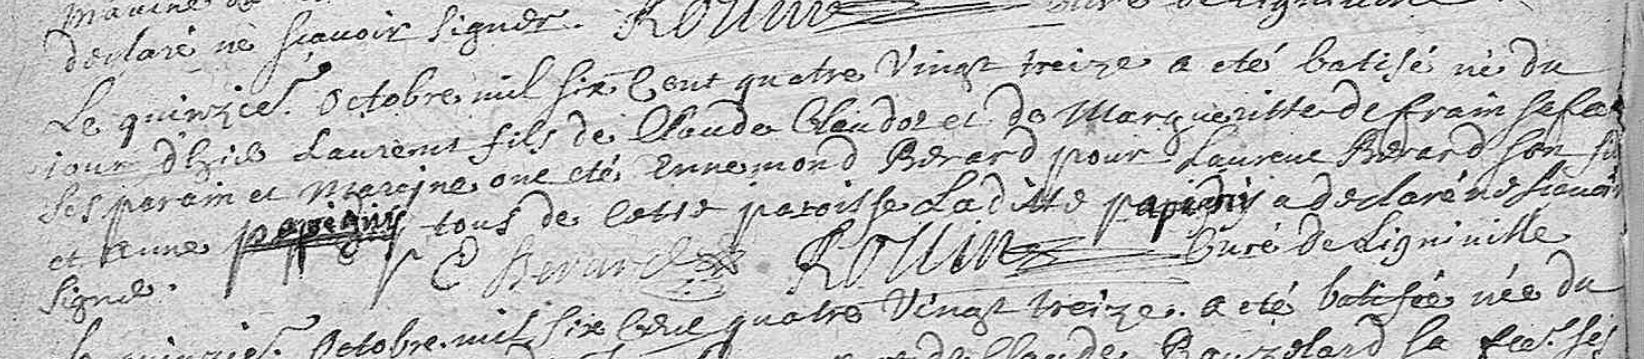 declaré ne sçavoir signer. Rouin curé de Ligniville
Le quinzie. octobre mil six Cent quatre Vingt treize a eté batisé né du
iour d'hier Laurent fils de Claude Claudot et de Margueritte de frain sa fe
Ses parain et maraine ont eté Ennemond Berard pour Laurent Berard son fi
et Anne papigny tous de cette paroisse Laditte papigny a declaré ne scauoir
signer. E Berard Rouin Curé de Ligniville
Le quinzie. octobre mil six Cent quatre Vingt treize. a eté batisée née du
de Claude Bauzelard sa fe. ses